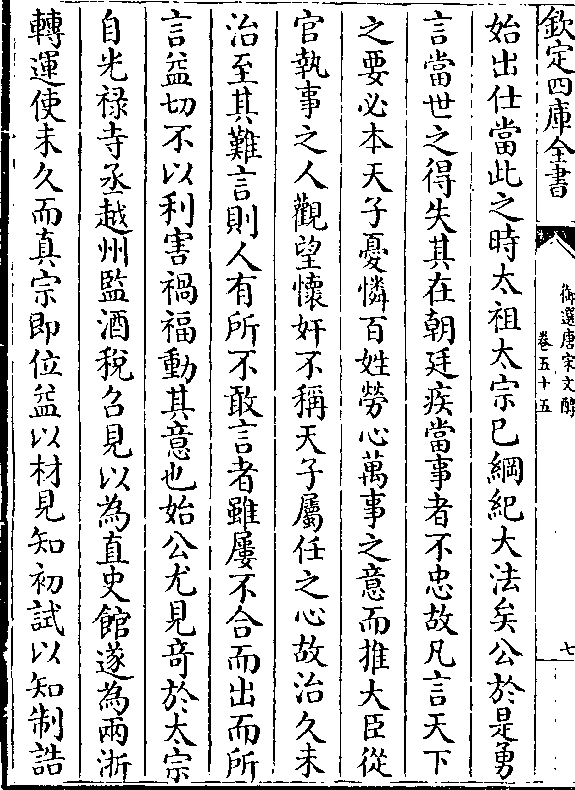 欽定四庫全書
御選唐宋文醇
卷五十五
七
始出仕當此之時太祖太宗已綱紀大法矣公於是勇
言當世之得失其在朝廷疾當事者不忠故凡言天下
之要必本天子憂憐百姓勞心萬事之意而推大臣從
官執事之人觀望懷奸不稱天子屬任之心故治久未
治至其難言則人有所不敢言者雖屢不合而出而所
言益切不以利害禍福動其意也始公尤見竒於太宗
自光禄寺丞越州監酒稅召見以為直史館遂為兩浙
轉運使未久而真宗即位益以材見知初試以知制誥